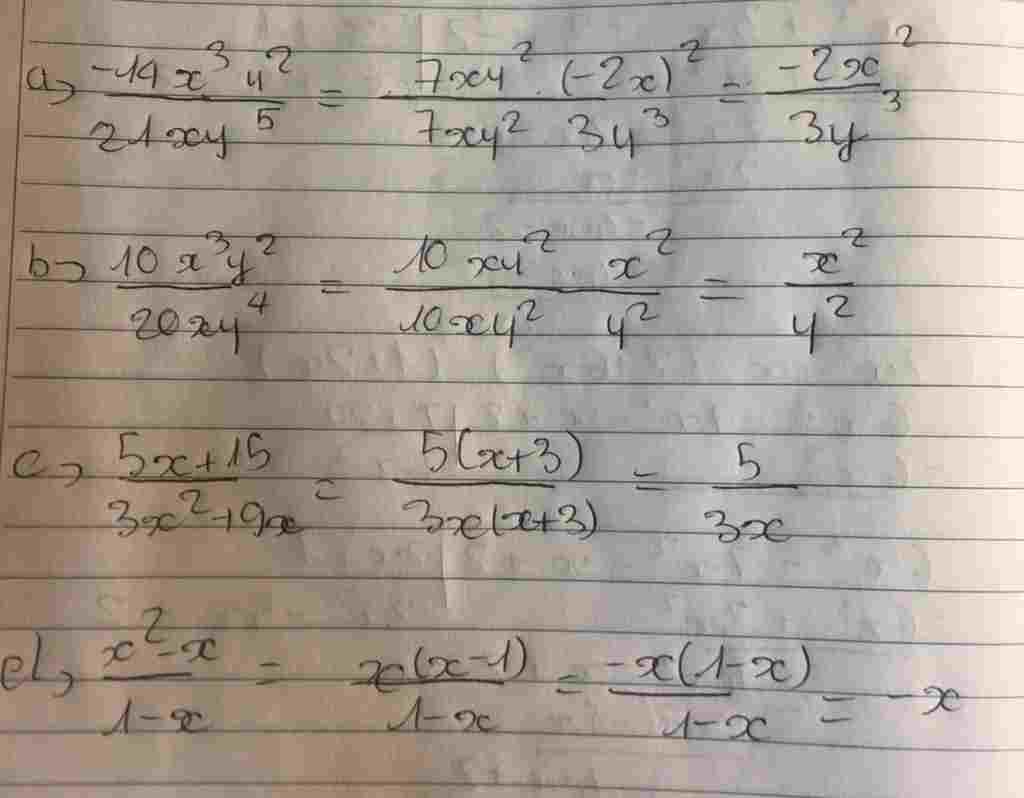 a, -14x³y² / 21xy⁵ = 7xy² . (-2x)² / 7xy² 3y³ = -2x² / 3y³
b, 10x³y² / 20xy⁴ = 10xy² x² / 10xy² y² = x² / y²
c, 5x+15 / 3x²+9x = 5(x+3) / 3x(x+3) = 5 / 3x
d, x²-x / 1-x = x(x-1) / 1-x = -x(1-x) / 1-x = -x